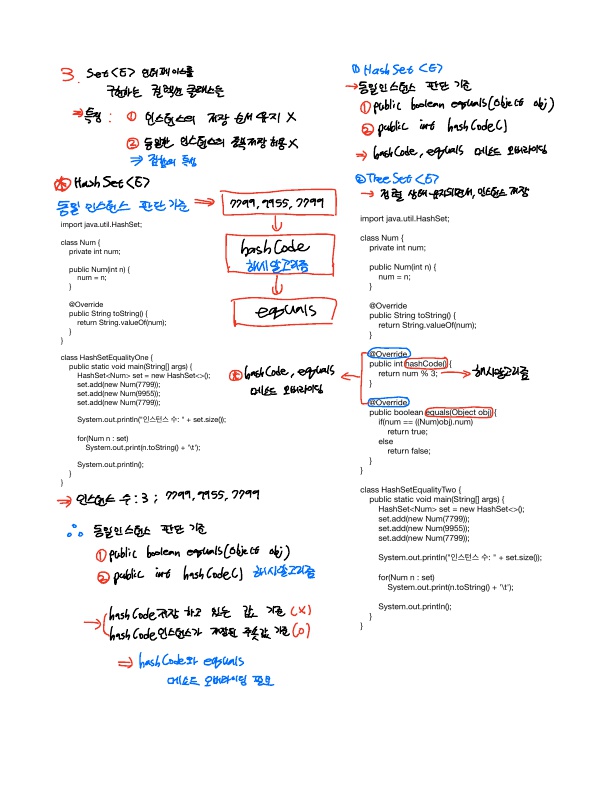 3. Set<E> 인터페이스를
구현하는 컬렉션 클래스들
⇒ 특징 : ① 인스턴스의 저장 순서 유지 X
② 동일한 인스턴스의 중복 저장 허용 X
⇒ 집합의 특성
HashSet<E>
동일 인스턴스 판단 기준 ⇒ 7799, 9955, 7799
hashCode
해시알고리즘
equals
import java.util.HashSet;
class Num {
private int num;
public Num(int n) {
num = n;
}
@Override
public String toString() {
return String.valueOf(num);
}
}
class HashSetEqualityOne {
public static void main(String[] args) {
HashSet<Num> set = new HashSet<>();
set.add(new Num(7799));
set.add(new Num(9955));
set.add(new Num(7799));
System.out.println("인스턴스 수: " + set.size());
for(Num n : set)
System.out.print(n.toString() + '\t');
System.out.println();
}
}
⇒ 인스턴스 수 : 3 ; 7799, 9955, 7799
∴ 동일 인스턴스 판단 기준
① public boolean equals(Object obj)
② public int hashCode() 해시알고리즘
→ hashCode 저장 하고 있는 값 기준 (X)
hashCode 인스턴스가 저장된 주솟값 기준 (O)
⇒ hashCode와 equals
메소드 오버라이딩 필요
① HashSet <E>
→ 동일인스턴스 판단 기준
① public boolean equals(Object obj)
② public int hashCode()
⇒ hashCode, equals 메소드 오버라이딩
② TreeSet <E>
→ 정렬 상태 유지되면서, 인스턴스 저장
import java.util.HashSet;
class Num {
private int num;
public Num(int n) {
num = n;
}
@Override
public String toString() {
return String.valueOf(num);
}
@Override
public int hashCode() {
return num % 3; → 해시알고리즘
}
hashCode, equals
메소드 오버라이딩
@Override
public boolean equals(Object obj) {
if(num == ((Num)obj).num)
return true;
else
return false;
}
}
class HashSetEqualityTwo {
public static void main(String[] args) {
HashSet<Num> set = new HashSet<>();
set.add(new Num(7799));
set.add(new Num(9955));
set.add(new Num(7799));
System.out.println("인스턴스 수: " + set.size());
for(Num n : set)
System.out.print(n.toString() + '\t');
System.out.println();
}
}